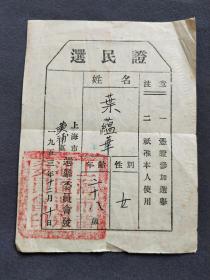 選民證
注意
一 憑證參加選舉
二 祇准本人使用
姓名
葉蘊華
性別
女
年齡
二十八歲
上海市黃浦區選舉委員會發
一九五三年十二月十日